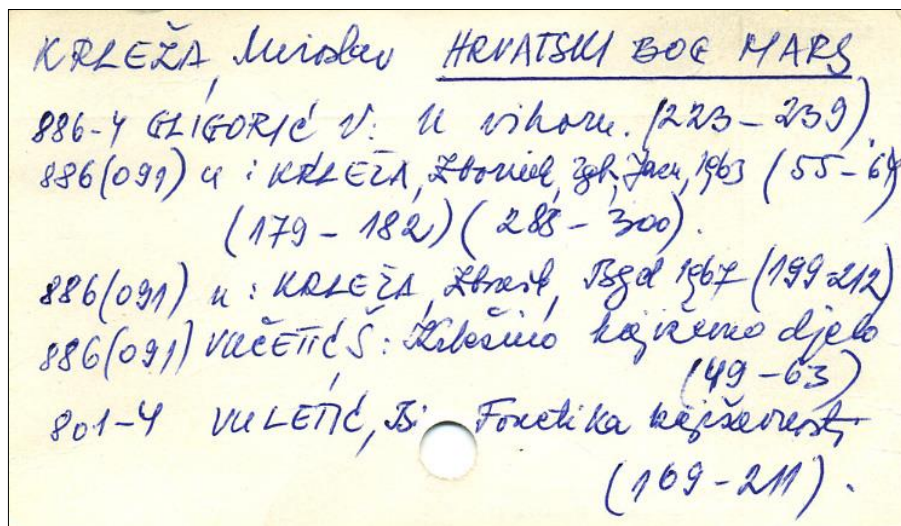 KRLEŽA, Miroslav HRVATSKI BOG MARS
886-4 GLIGORIĆ V: U vihoru. (223-239)
886(091) u: KRLEŽA, Zbornik, Zgb, Jaz, 1963 (55-64)
(179-182) (288-300).
886(091) u: KRLEŽA, Zbornik, Bgd 1967 (199-212)
886(091) VUČETIĆ Š: Krležino književno djelo
(49-63)
801-4 VULETIĆ, B: Fonetika književnosti
(169-211).